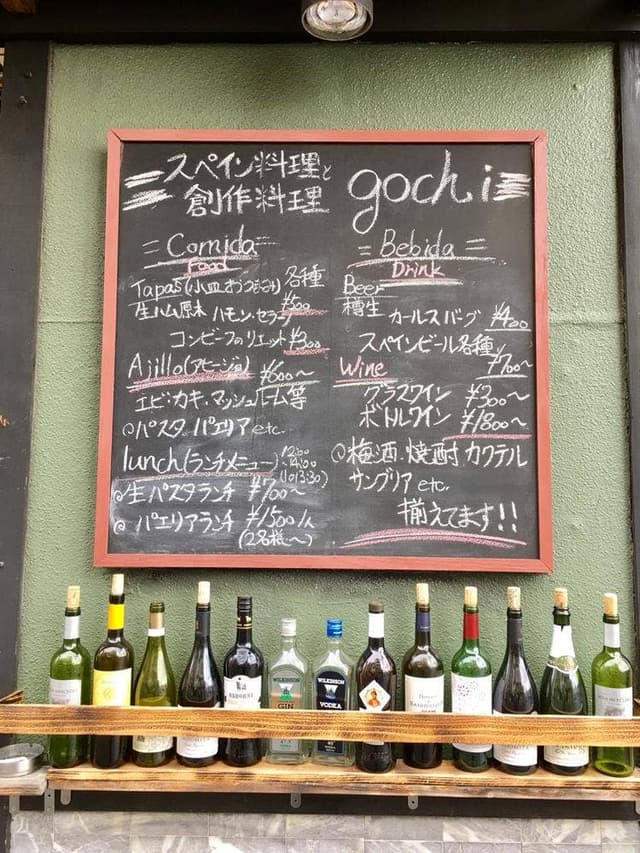 スペイン料理と
創作料理
gochi
Comida
Food
Tapas(小皿おつまみ)各種
¥300
生ハム原木 ハモン・セラーノ
コンビーフのリエット ¥300
Ajillo(アヒージョ) ¥600〜
エビ・カキ・マッシュルーム等
◎パスタ パエリア etc.
lunch(ランチメニュー) 12:00
〜14:00
(lo13:30)
◎生パスタランチ ¥700〜
◎パエリアランチ ¥1500/人
(2名様〜)
Bebida
Drink
Beer
樽生 カールスバーグ ¥400
スペインビール各種
¥700〜
Wine
グラスワイン ¥300〜
ボトルワイン ¥1800〜
◎梅酒.焼酎 カクテル
サングリア etc.
揃えてます!!
WILKINSON
GIN
WILKINSON
VODKA